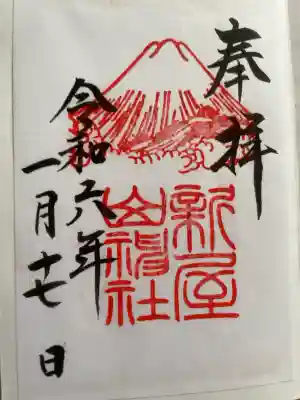 奉拝
新屋
山神社
令和六年
一月十七日